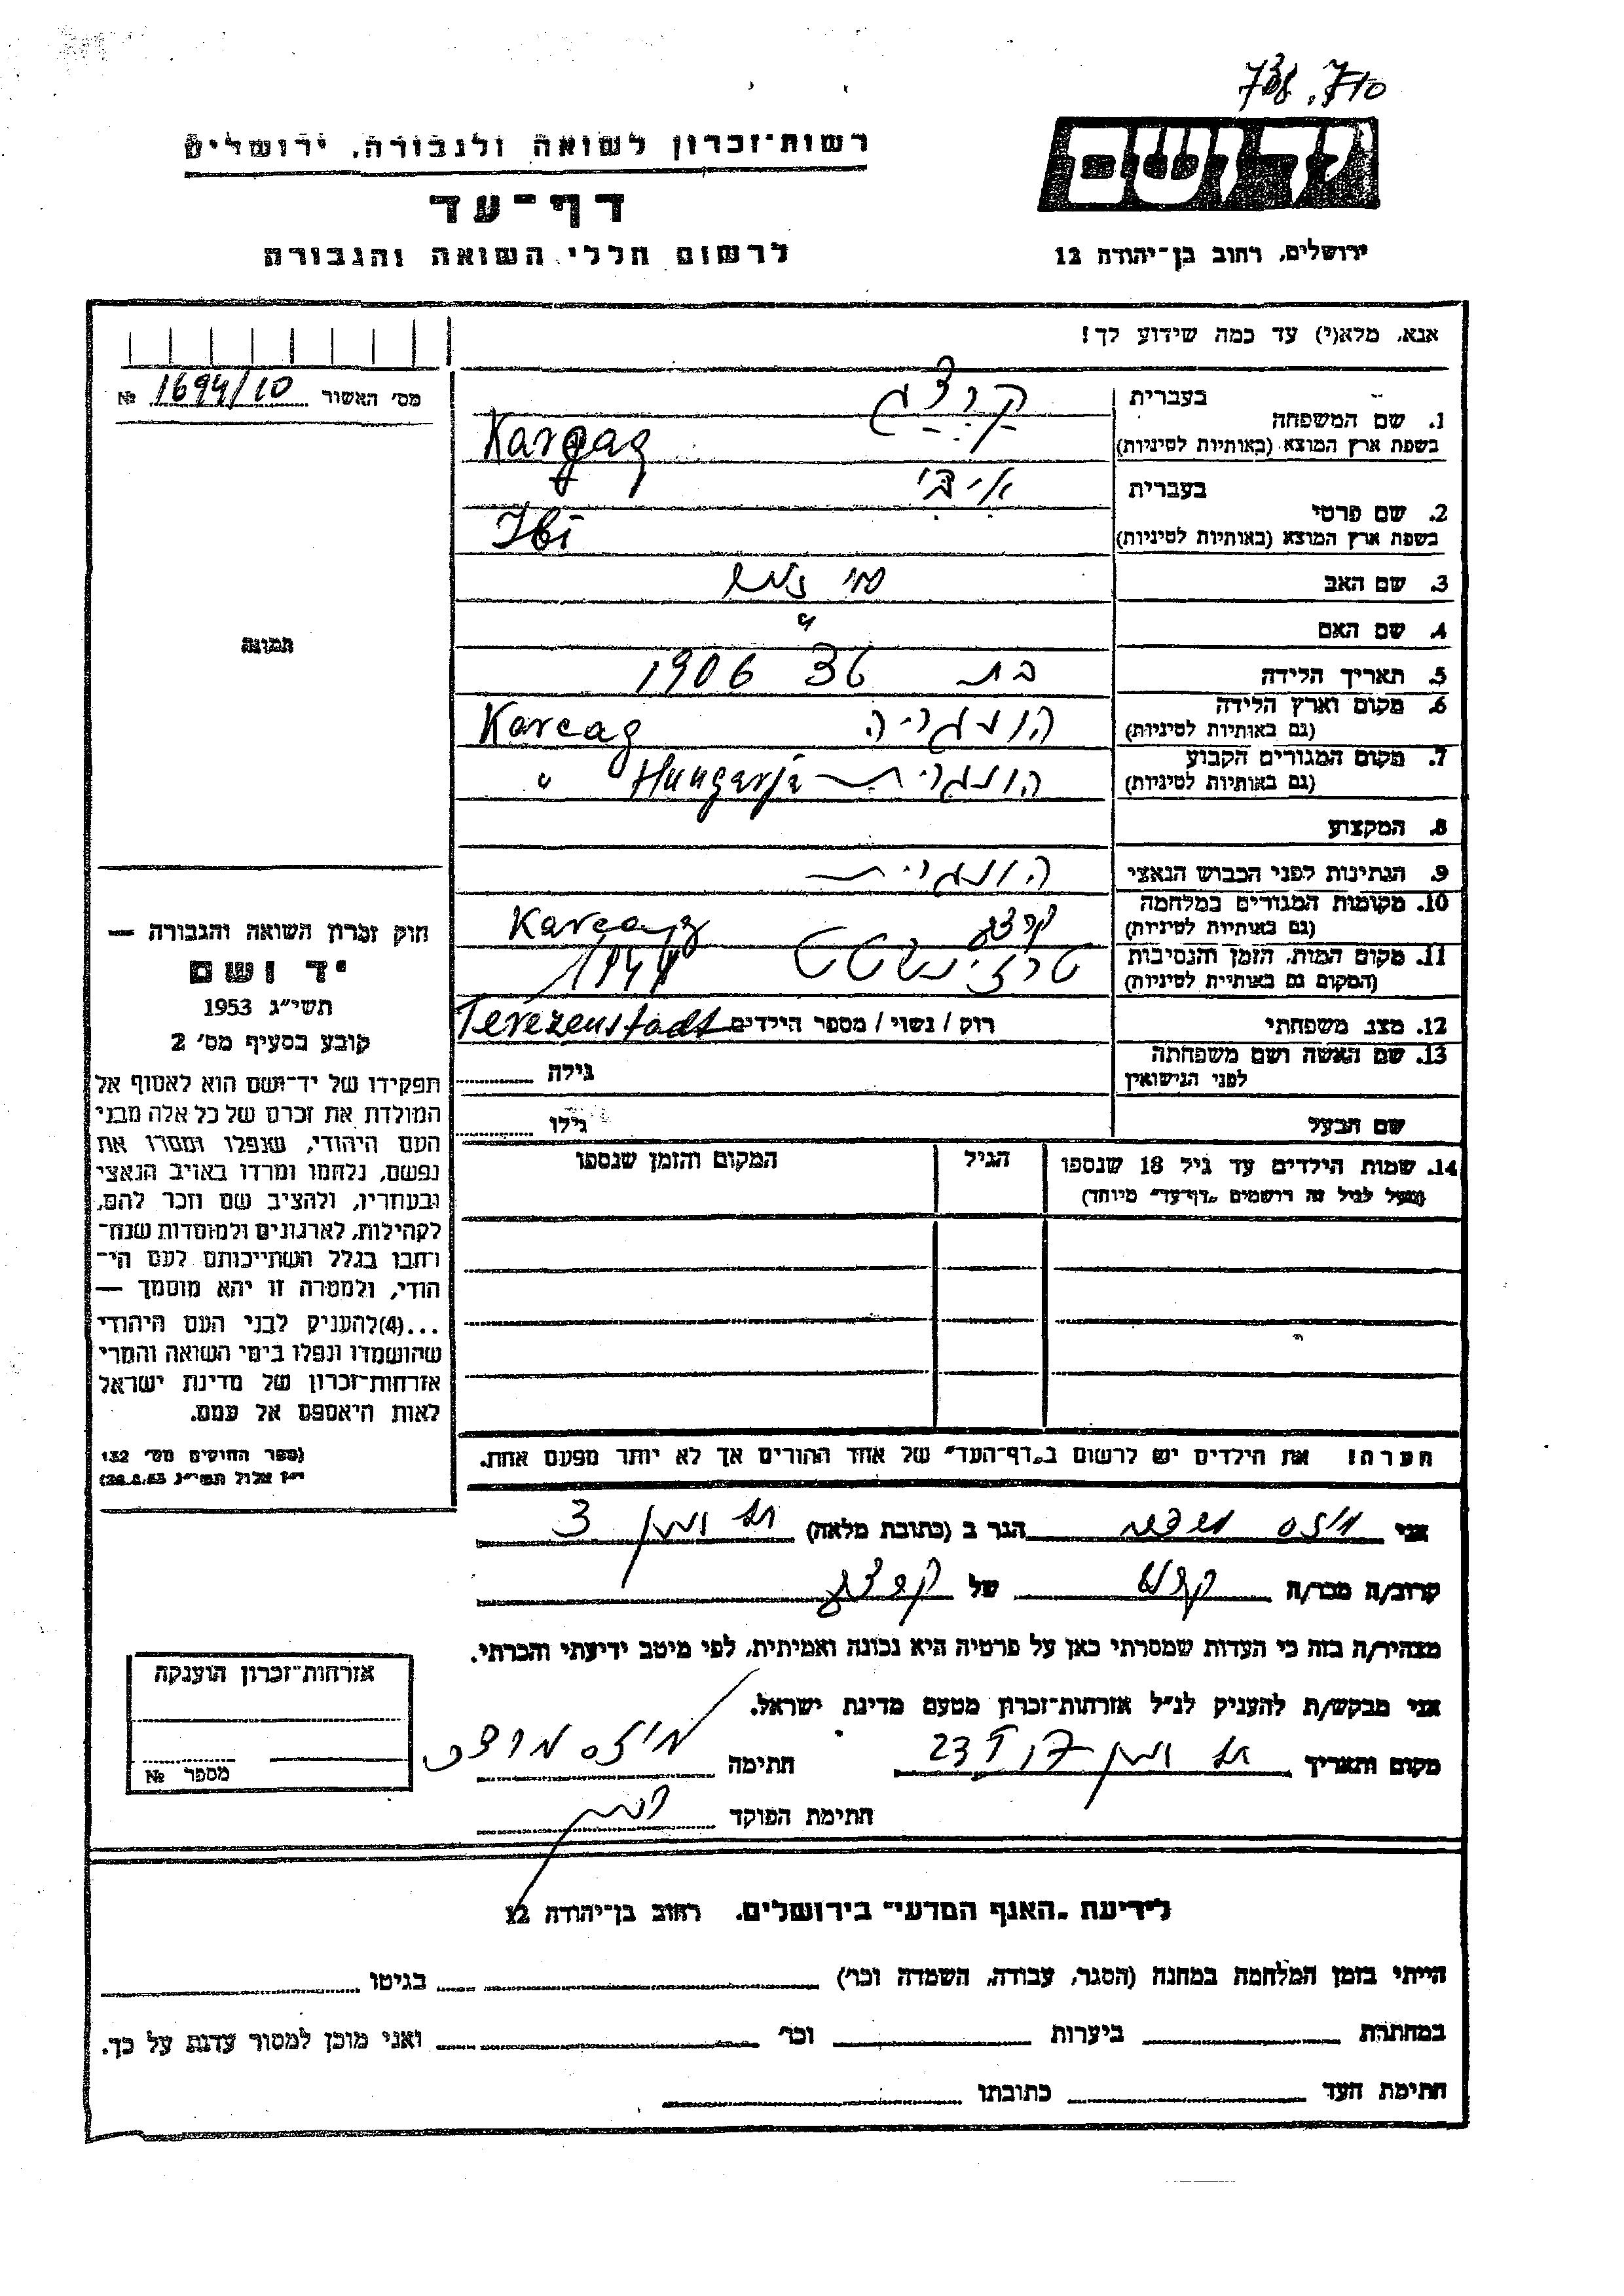 738.710
רשות־זכרון לשואה ולגבורה, ירושלים
יד ושם
דף־עד
לרשום חללי השואה והגבורה
ירושלים, רחוב בן־יהודה 12
אנא, מלא(י) עד כמה שידוע לך!
מס׳ האשור 1694/10 №
1. שם המשפחה
בעברית קרצג
בשפת ארץ המוצא (באותיות לטיניות) Kargag
2. שם פרטי
בעברית איבי
בשפת ארץ המוצא (באותיות לטיניות) Ibi
3. שם האב
4. שם האם "
5. תאריך הלידה בת 36 1906
6. מקום וארץ הלידה הונגריה Karcag
(גם באותיות לטיניות)
7. מקום המגורים הקבוע הונגרית Hungarja "
(גם באותיות לטיניות)
8. המקצוע
9. הנתינות לפני הכבוש הנאצי הונגרית
10. מקומות המגורים במלחמה קרצג Karcag
(גם באותיות לטיניות)
11. מקום המות, הזמן והנסיבות טרזינשטט 1944
(המקום גם באותיות לטיניות)
12. מצב משפחתי רוק / נשוי / מספר הילדים Terezenstadt
13. שם האשה ושם משפחתה גילה
לפני הנישואין
שם הבעל גילו
14. שמות הילדים עד גיל 18 שנספו הגיל המקום והזמן שנספו
(מעל לגיל זה רושמים „דף־עד" מיוחד)
הערה: את הילדים יש לרשום ב„דף־העד" של אחד ההורים אך לא יותר מפעם אחת.
תמונה
חוק זכרון השואה והגבורה —
יד ושם
תשי"ג 1953
קובע בסעיף מס׳ 2
תפקידו של יד־ושם הוא לאסוף אל
המולדת את זכרם של כל אלה מבני
העם היהודי, שנפלו ומסרו את
נפשם, נלחמו ומרדו באויב הנאצי
ובעוזריו, ולהציב שם וזכר להם,
לקהילות, לארגונים ולמוסדות שנח־
רבו בגלל השתייכותם לעם הי־
הודי, ולמטרה זו יהא מוסמך —
...(4)להעניק לבני העם היהודי
שהושמדו ונפלו בימי השואה והמרי
אזרחות־זכרון של מדינת ישראל
לאות היאספם אל עמם.
(ספר החוקים מס׳ 132
י"ז אלול תשי"ג 28.8.53)
אני הגר ב (כתובת מלאה) 3
קרוב/ה מכר/ה של קרצג
מצהיר/ה בזה כי העדות שמסרתי כאן על פרטיה היא נכונה ואמיתית, לפי מיטב ידיעתי והכרתי.
אני מבקש/ת להעניק לנ"ל אזרחות־זכרון מטעם מדינת ישראל.
מקום ותאריך 23 חתימה
חתימת הפוקד
אזרחות־זכרון הוענקה
מספר №
לידיעת „האגף המדעי" בירושלים, רחוב בן־יהודה 12
הייתי בזמן המלחמה במחנה (הסגר, עבודה, השמדה וכו׳) בגיטו
במחתרת ביערות וכו׳ ואני מוכן למסור עדות על כך.
חתימת העד כתובתו